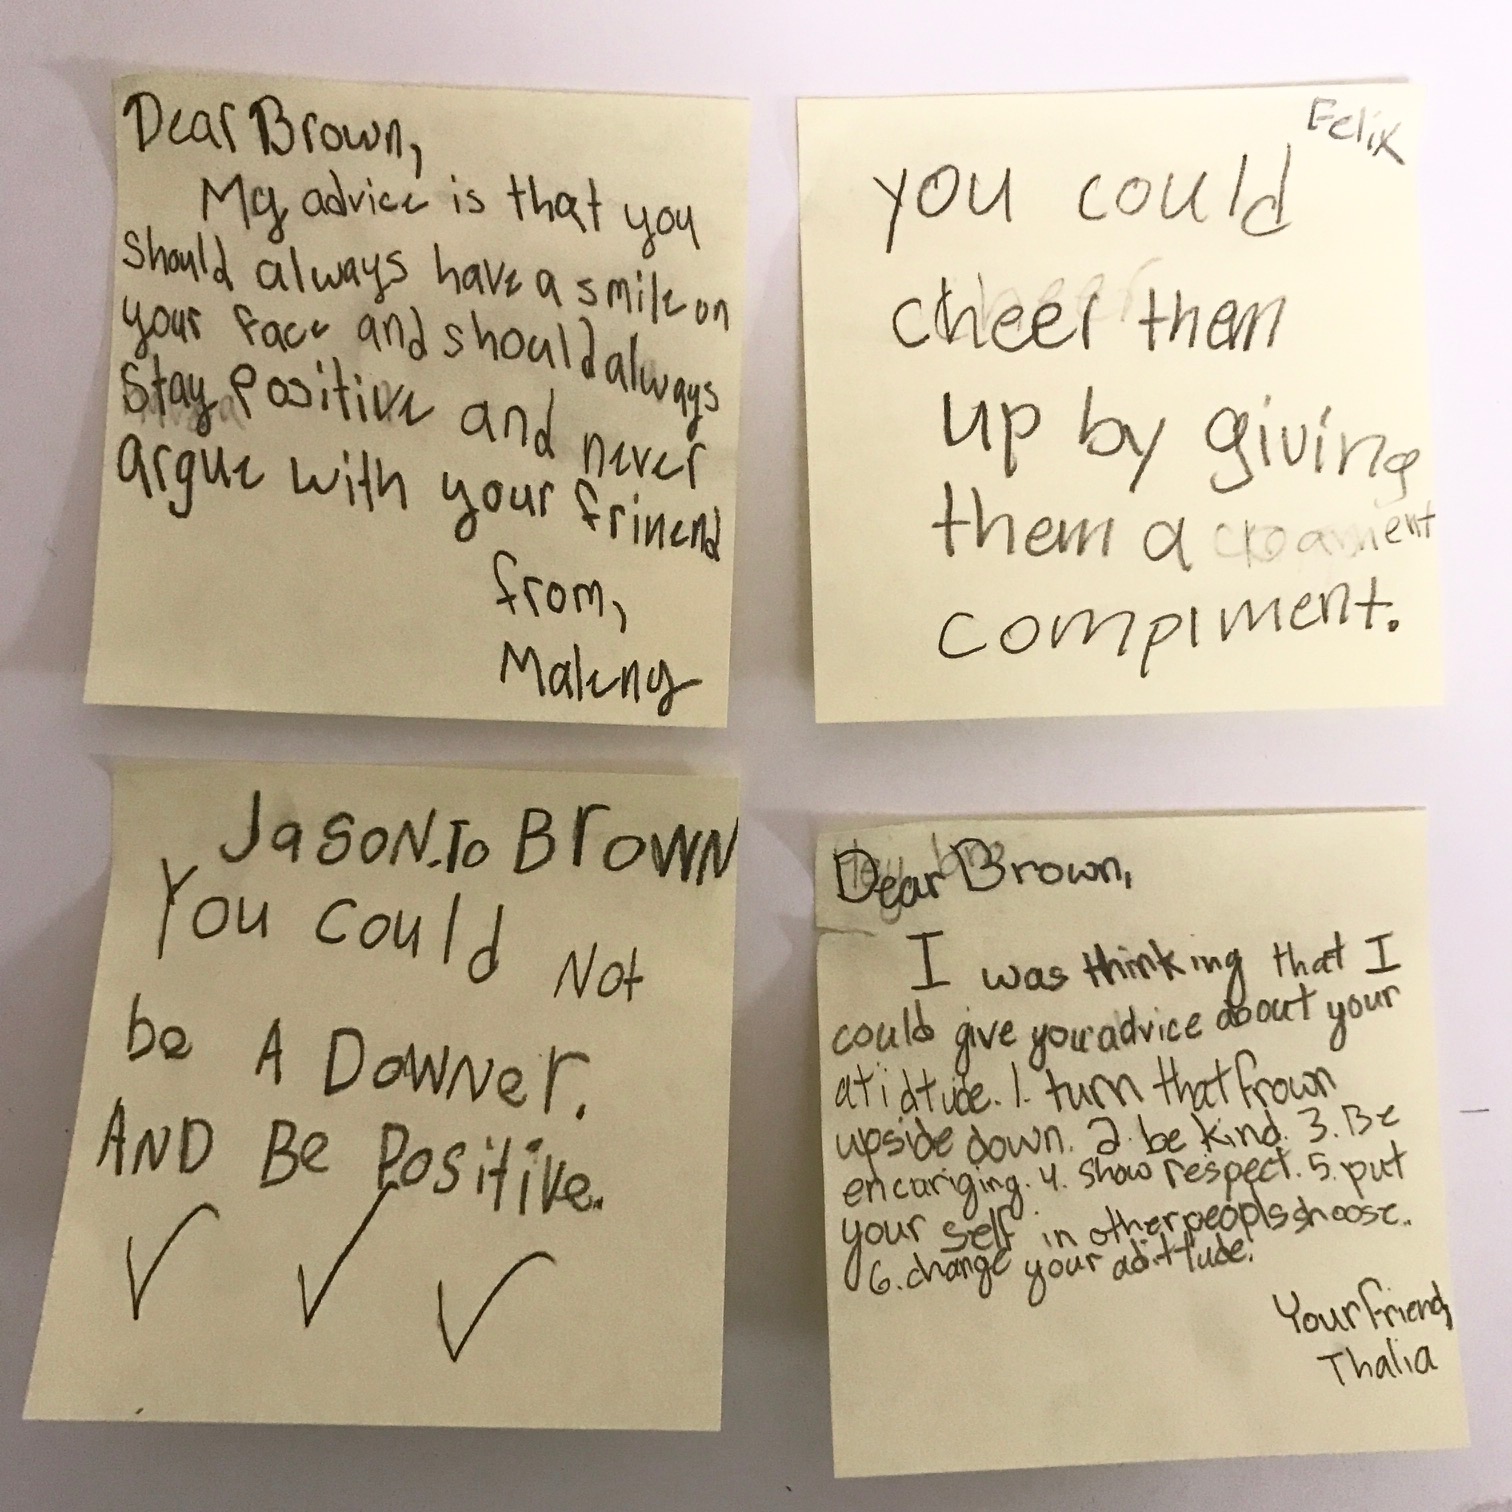 Dear Brown,
My advice is that you
should always have a smile on
your face and should always
stay positive and never
argue with your frinend
from,
Maleny
Felix
you could
cheer them
up by giving
them a
compiment.
Jason. To Brown
You could Not
be A Downer.
AND Be Positive.
Dear Brown,
I was thinking that I
could give you advice about your
atidtude. 1. turn that frown
upside down. 2. be kind. 3. Be
encuriging. 4. show respect. 5. put
your self in other peopls shoose.
6. change your adittude.
Your friend,
Thalia